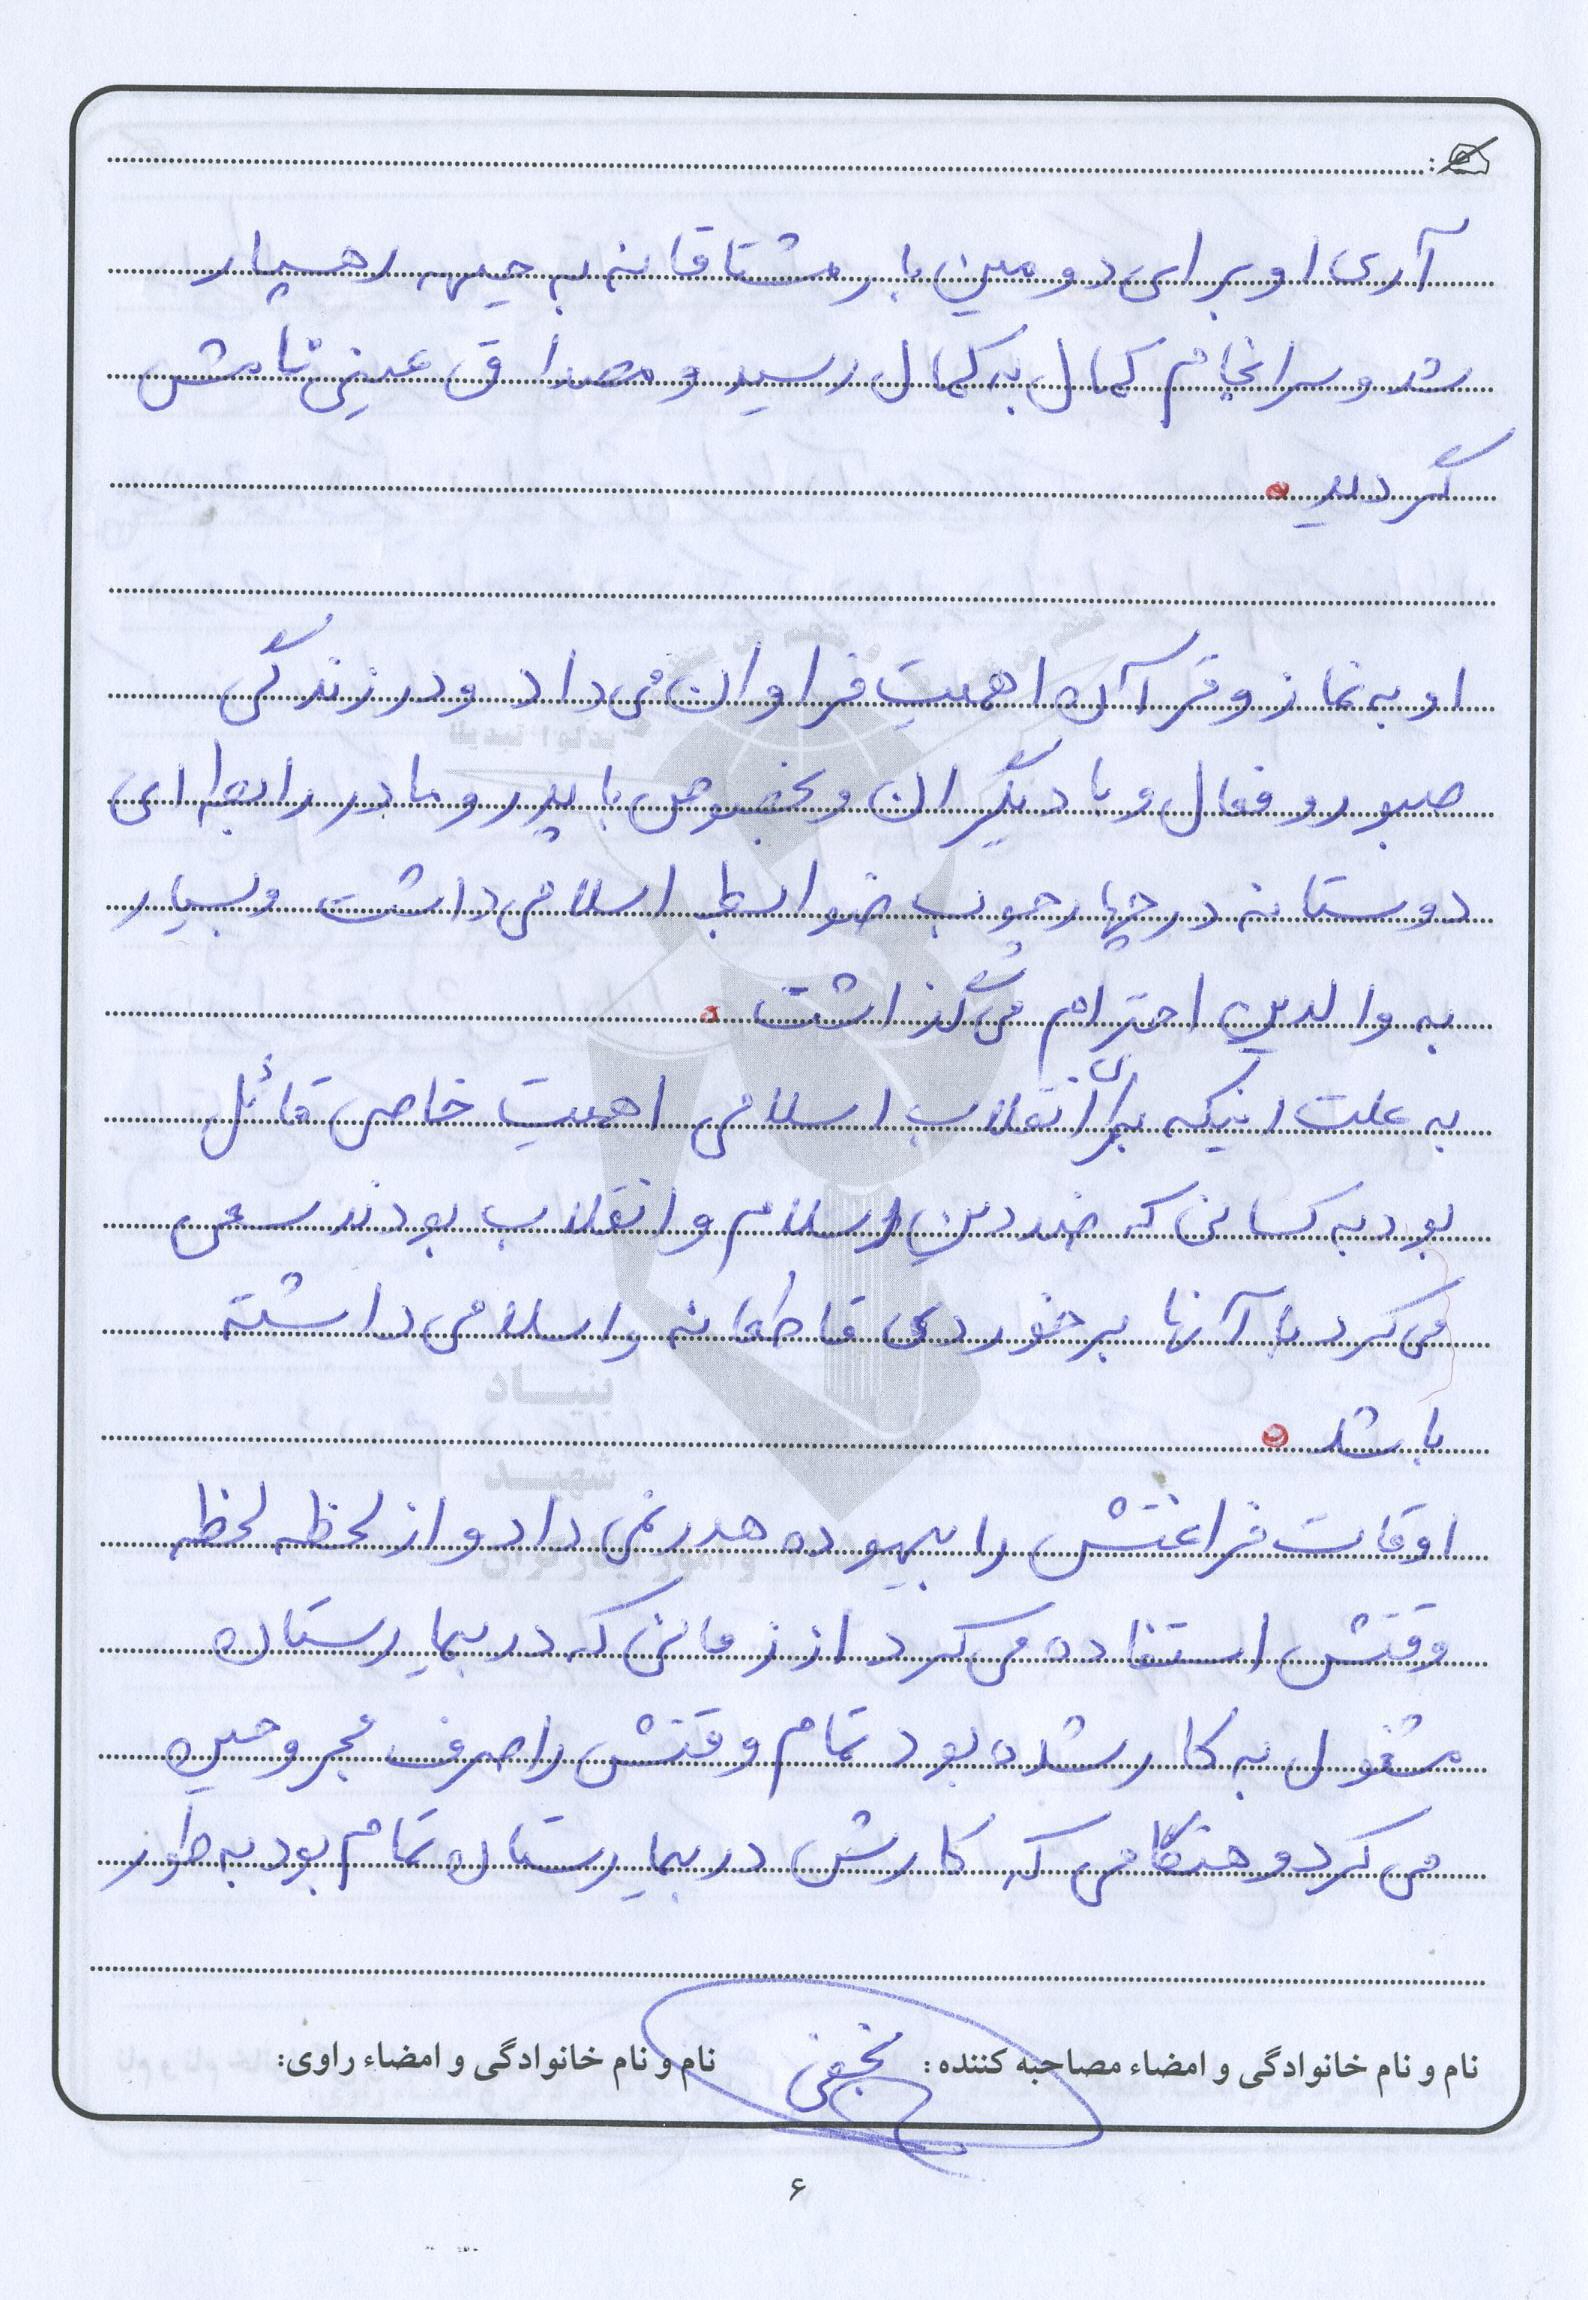 آری او برای دومین بار مشتاقانه به جبهه رهسپار
شد و سرانجام کمال به کمال رسید و مصداق عینی نامش
گردید .
او به نماز و قرآن اهمیت فراوان می داد و در زندگی
صبور و فعال و با دیگران و بخصوص با پدر و مادر رابطه ای
دوستانه در چهارچوب ضوابط اسلامی داشت و بسیار
به والدین احترام می گذاشت .
به علت اینکه برای انقلاب اسلامی اهمیت خاصی قائل
بود به کسانی که ضد دین اسلام و انقلاب بودند سعی
می کرد با آنها برخوردی قاطعانه و اسلامی داشته
باشد .
اوقات فراغتش را بیهوده هدر نمی داد و از لحظه لحظه
وقتش استفاده می کرد از زمانی که در بیمارستان
مشغول به کار شده بود تمام وقتش را صرف مجروحین
می کرد و هنگامی که کارش در بیمارستان تمام بود به طور
نام و نام خانوادگی و امضاء مصاحبه کننده: نجفی نام و نام خانوادگی و امضاء راوی:
۶
بنیاد
شهید